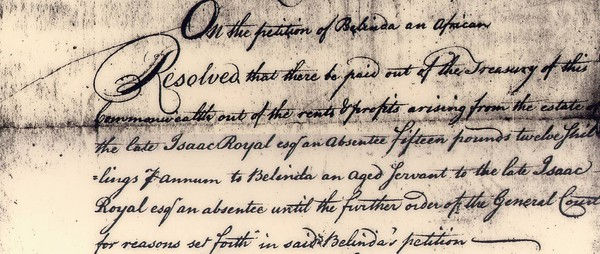 On the petition of Belinda an African
Resolved that there be paid out of the Treasury of this
Commonwealth out of the rents & profits arising from the estate of
the late Isaac Royal esqr an absentee fifteen pounds twelve Shil
=lings ⅌ annum to Belinda an Aged Servant to the late Isaac
Royal esqr an absentee until the further order of the General Court
for reasons set forth in said Belinda's petition